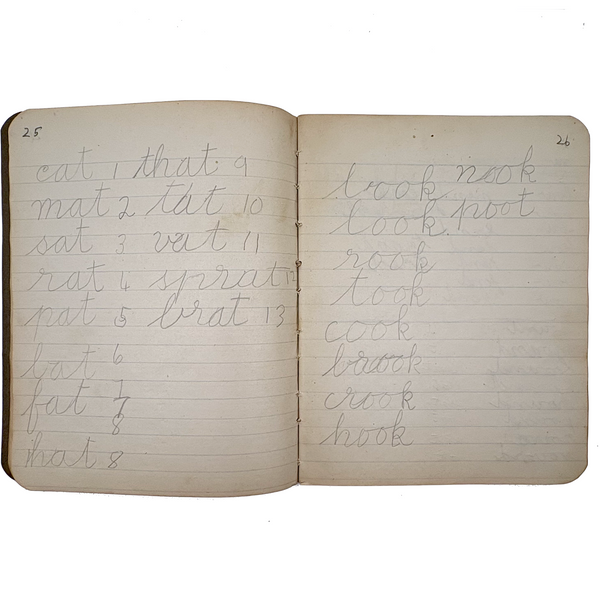 25
cat 1 that 9
mat 2 tat 10
sat 3 vat 11
rat 4 sprat 12
pat 5 brat 13
bat 6
7
fat 7
8
hat 8
26
book nook
look poot
rook
took
cook
brook
crook
hook